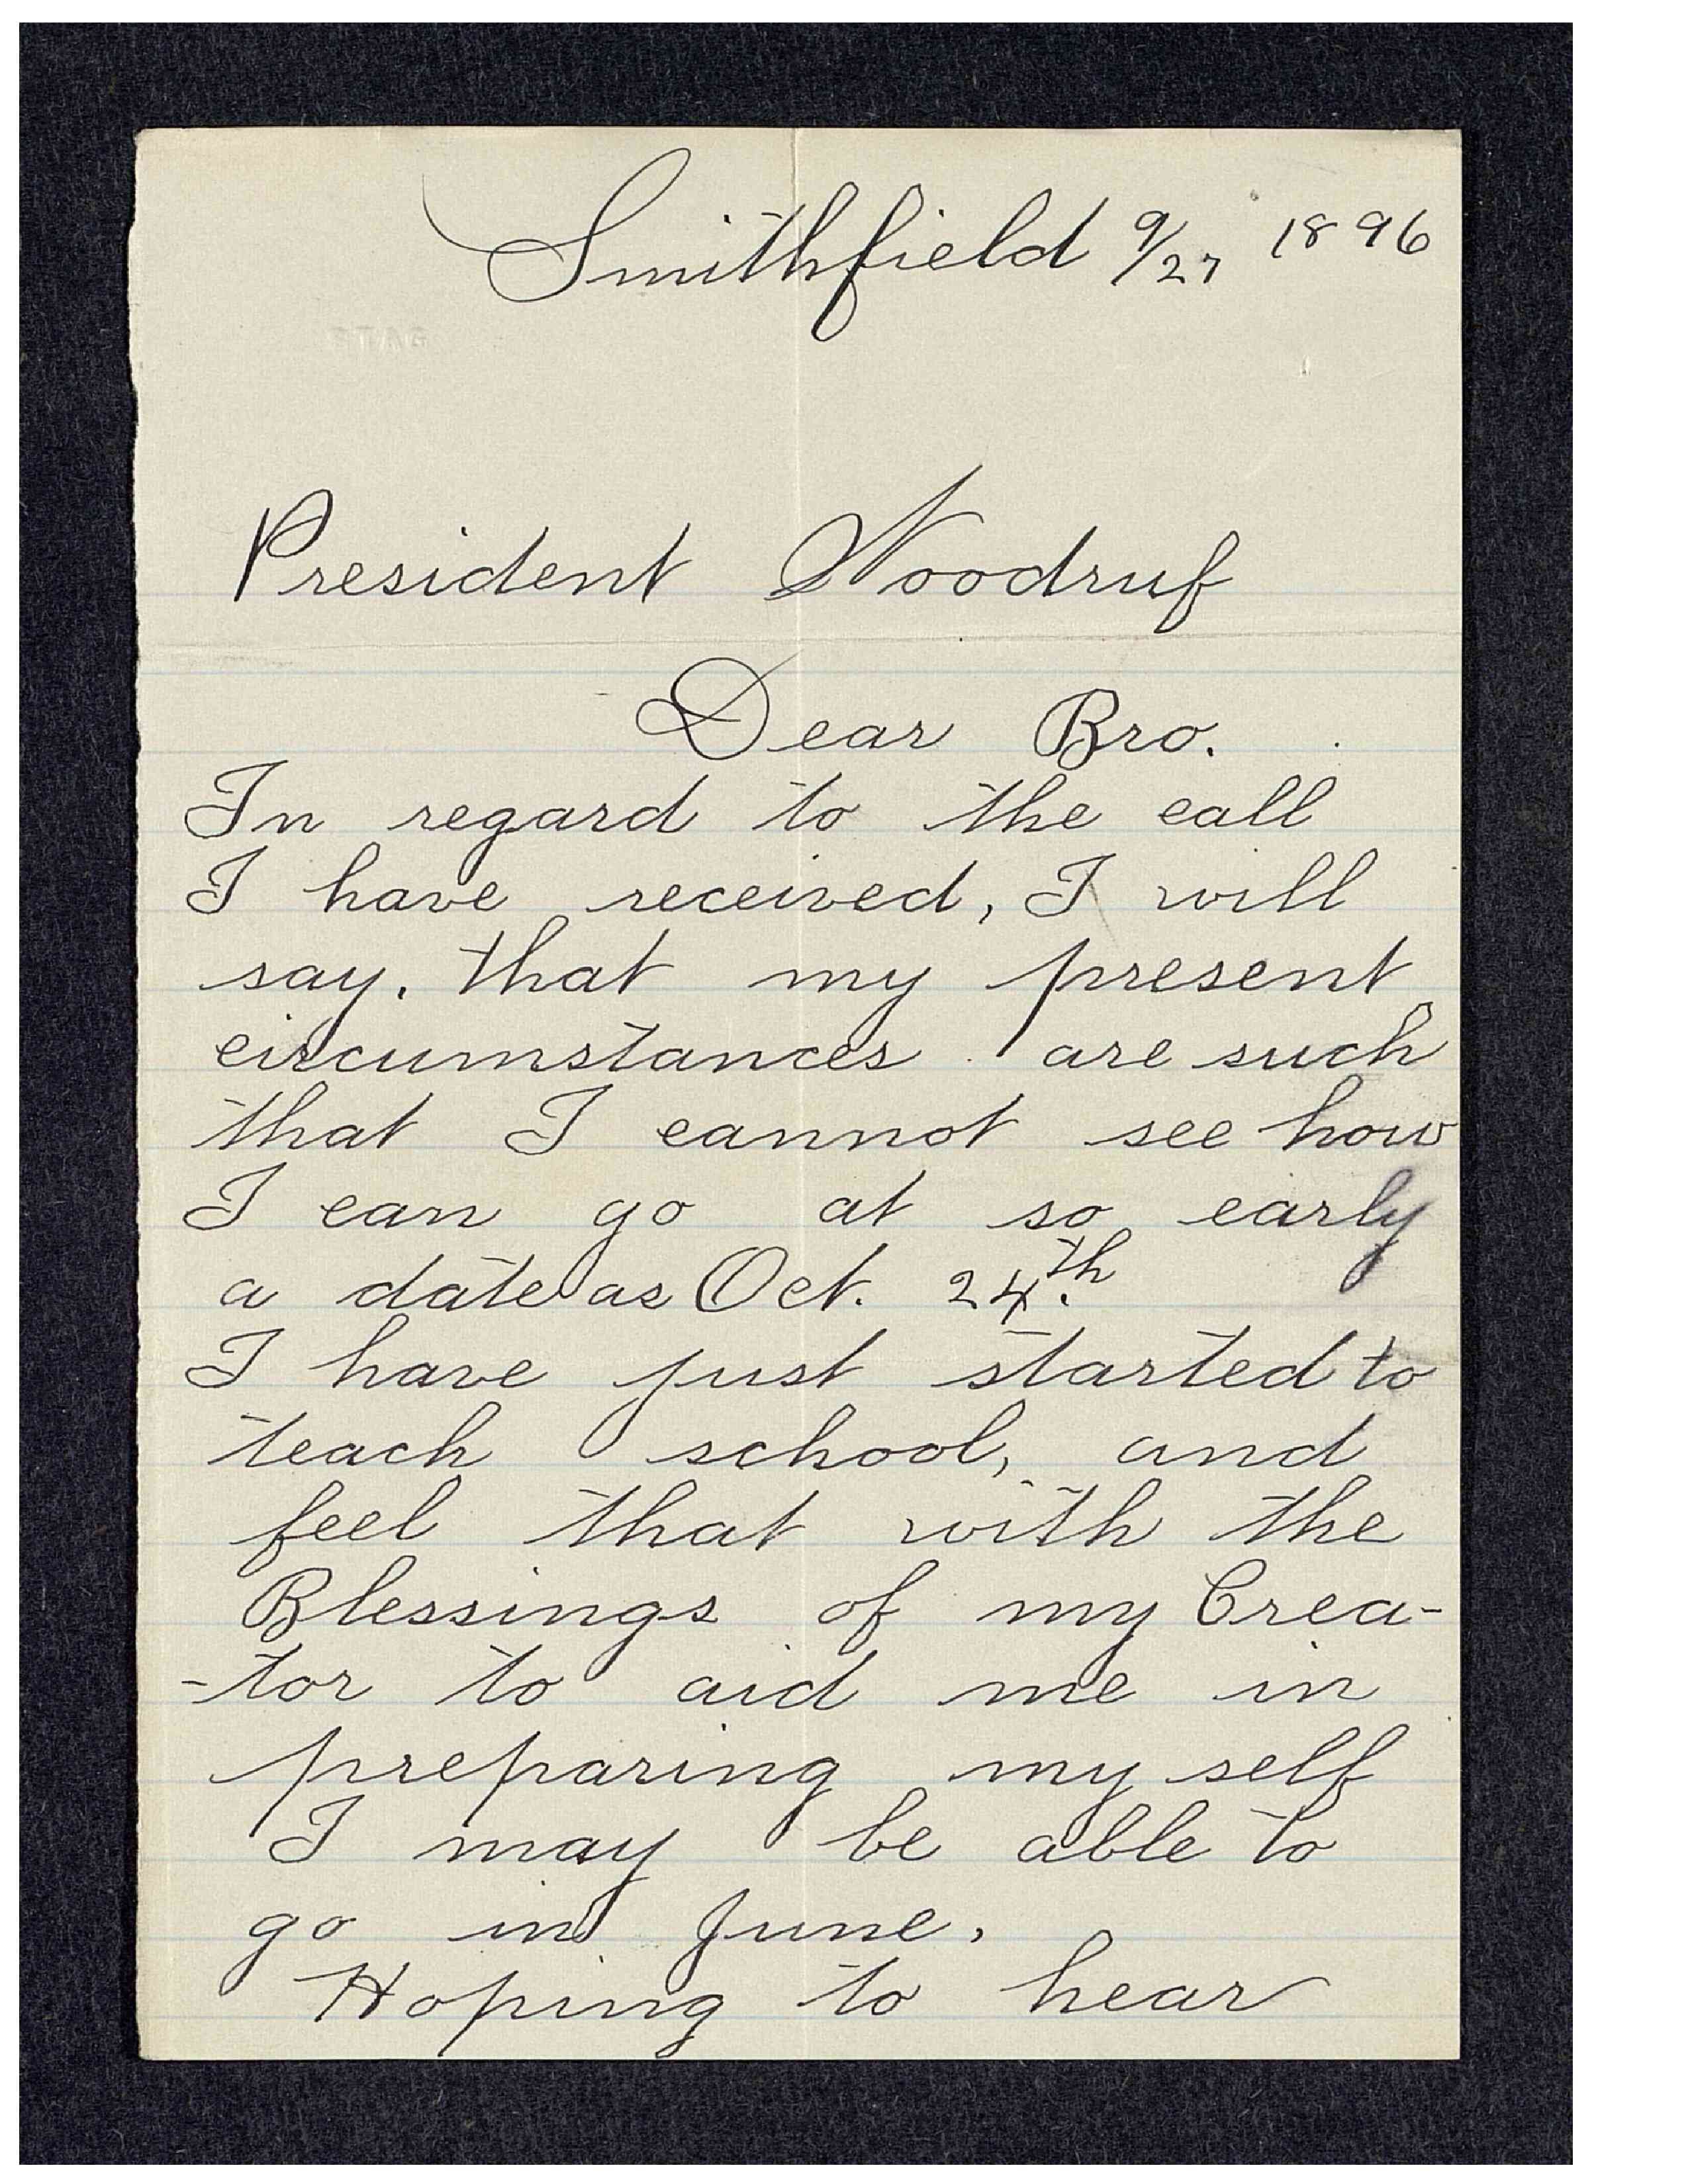 Smithfield 9/27 1896
President Woodruf
Dear Bro.
In regard to the call
I have received, I will
say, that my present
circumstances are such
that I cannot see how
I can go at so early
a date as Oct. 24th.
I have just started to
teach school, and
feel that with the
Blessings of my Crea-
-tor to aid me in
preparing my self
I may be able to
go in June.
Hoping to hear